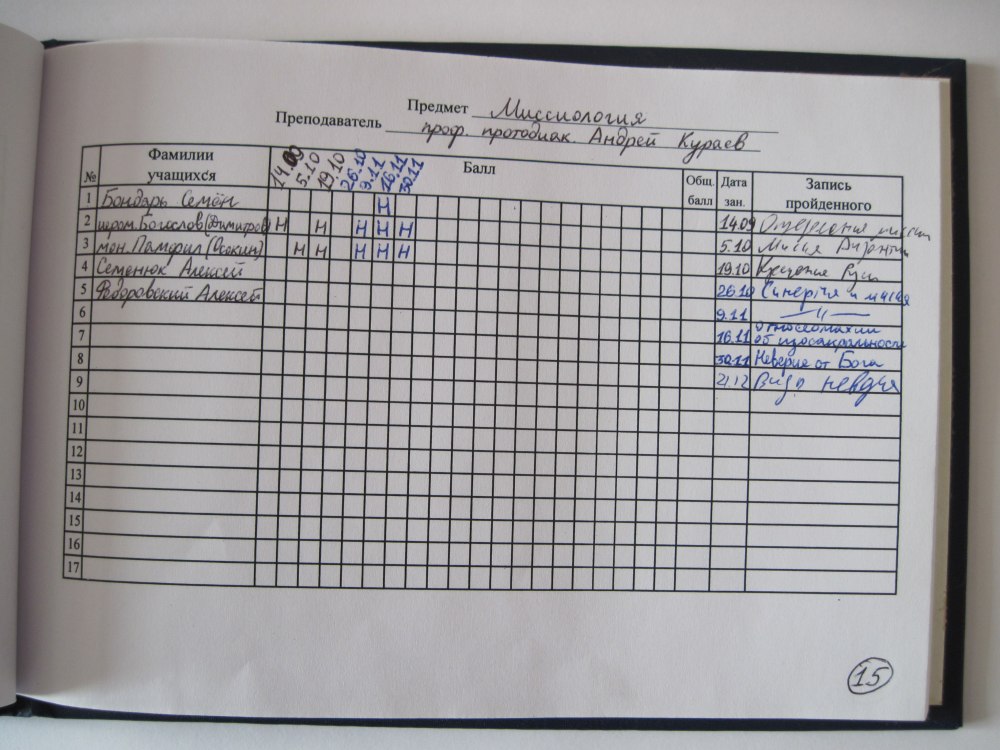 Предмет Миссиология
Преподаватель проф. протодиак. Андрей Кураев
№ Фамилии учащихся Балл Общ. балл Дата зан. Запись пройденного
14.09 5.10 19.10 26.10 9.11 16.11 30.11
1 Бондарь Семён Н
2 иером. Богослов (Димитров) Н Н Н Н Н 14.09 миссии
3 мон. Памфил Н Н Н Н Н 5.10 Миссия Византии
4 Семенюк Алексей 19.10 Крещение Руси
5 Федоровский Алексей 26.10 Синергия и миссия
6 9.11 —〃—
7 16.11 об изосакральности
8 30.11 Неверие от Бога
9 21.12
10
11
12
13
14
15
16
17
15